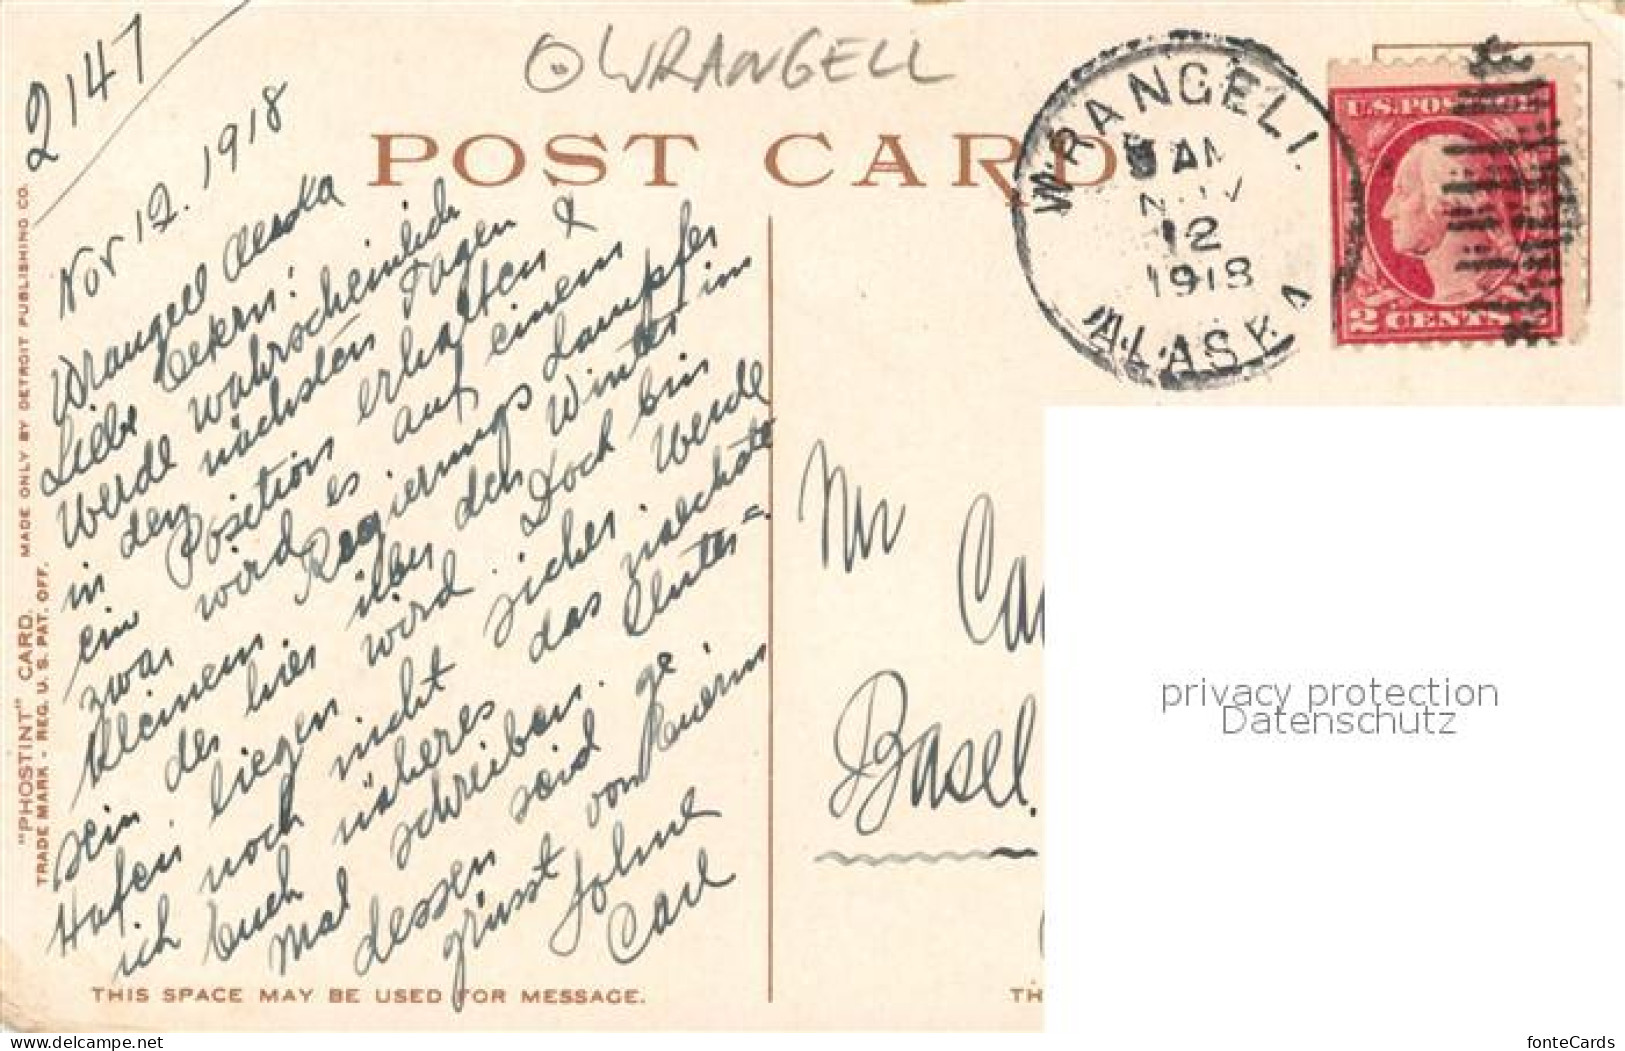 2147
WRANGELL
POST CARD
WRANGELL
AM
NOV
12
1918
ALASKA
U.S. POSTAGE
2 CENTS 2
"PHOSTINT" CARD. MADE ONLY BY DETROIT PUBLISHING CO.
TRADE MARK - REG. U. S. PAT. OFF.
Nov 12. 1918
Wrangell Alaska
Liebe Eltern!
Werde wahrscheinlich
in den nächsten Tagen
ein Position erhalten &
zwar wird es auf einem
kleinem Regierungs Dampfer
sein der hier über den Winter im
Hafen liegen wird Doch bin
ich noch nicht sicher. Werde
Euch näheres das naechste
Mal schreiben.
dessen seid ge
grüsst von Euerm
Sohne
Carl
THIS SPACE MAY BE USED FOR MESSAGE.
Mr
Ca
Basel.
TH
privacy protection
Datenschutz
www.delcampe.net
fonteCards